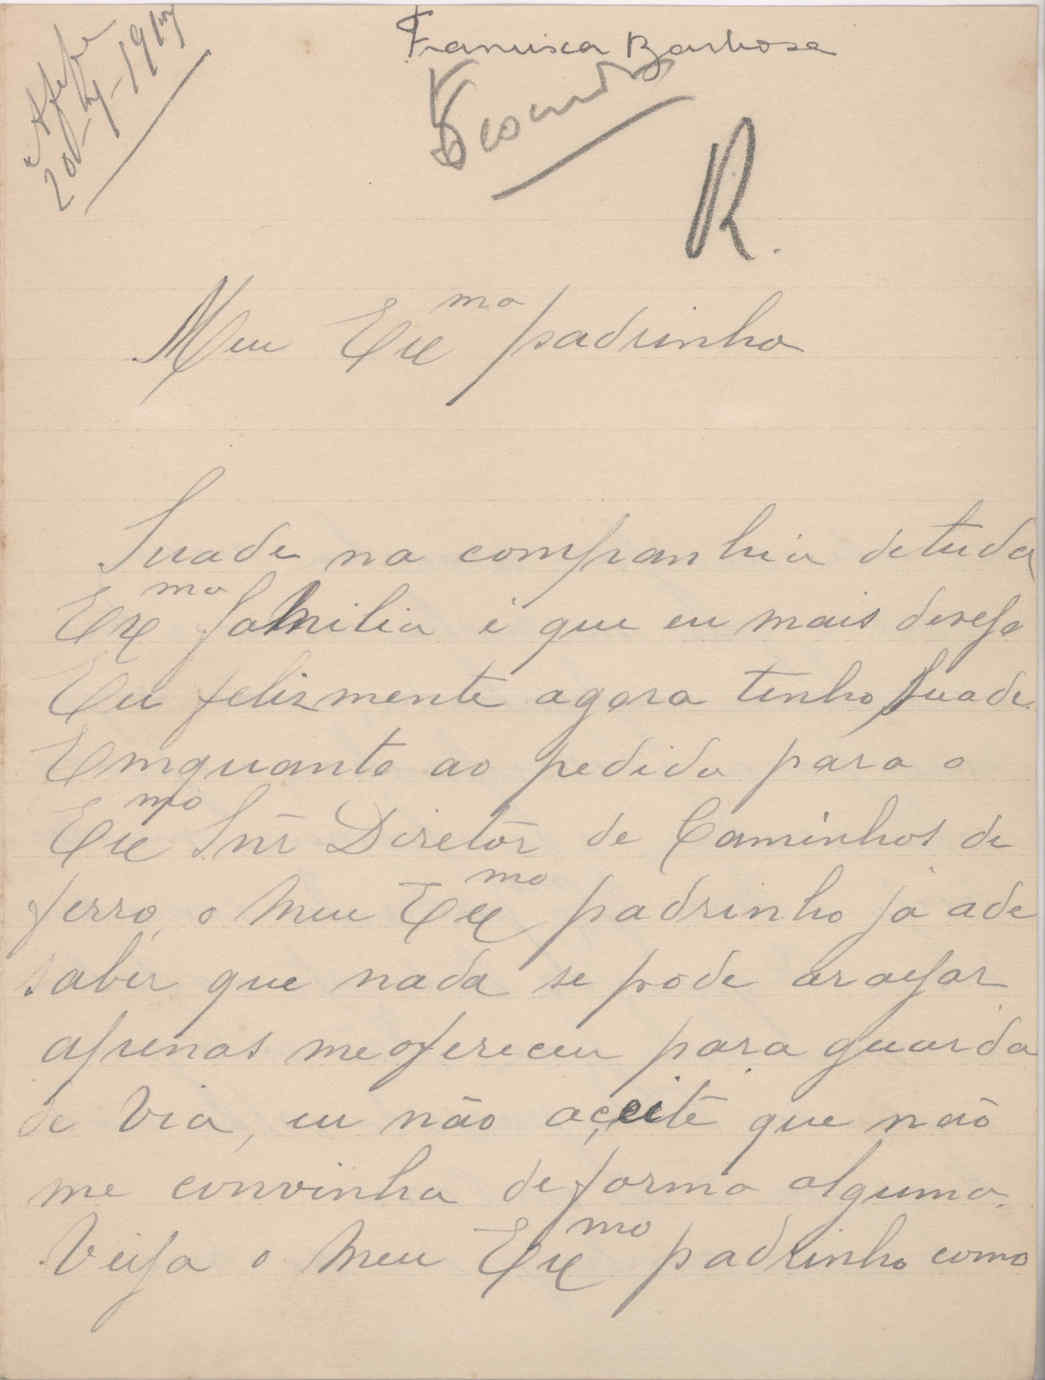 20-4-1917
Francisca Barbosa
R.
Meu Exmo padrinho
Suade na companhia detuda
Exma familia é que eu mais desejo
Eu felizmente agora tenho suade.
Emquanto ao pedido para o
Exmo Snr Diretor de Caminhos de
ferro, o meu Exmo padrinho já ade
saber que nada se pode arajar
apenas meofereceu para guarda
de Via, eu não aceite que não
me convinha deforma alguma.
Veija o meu Exmo padrinho como